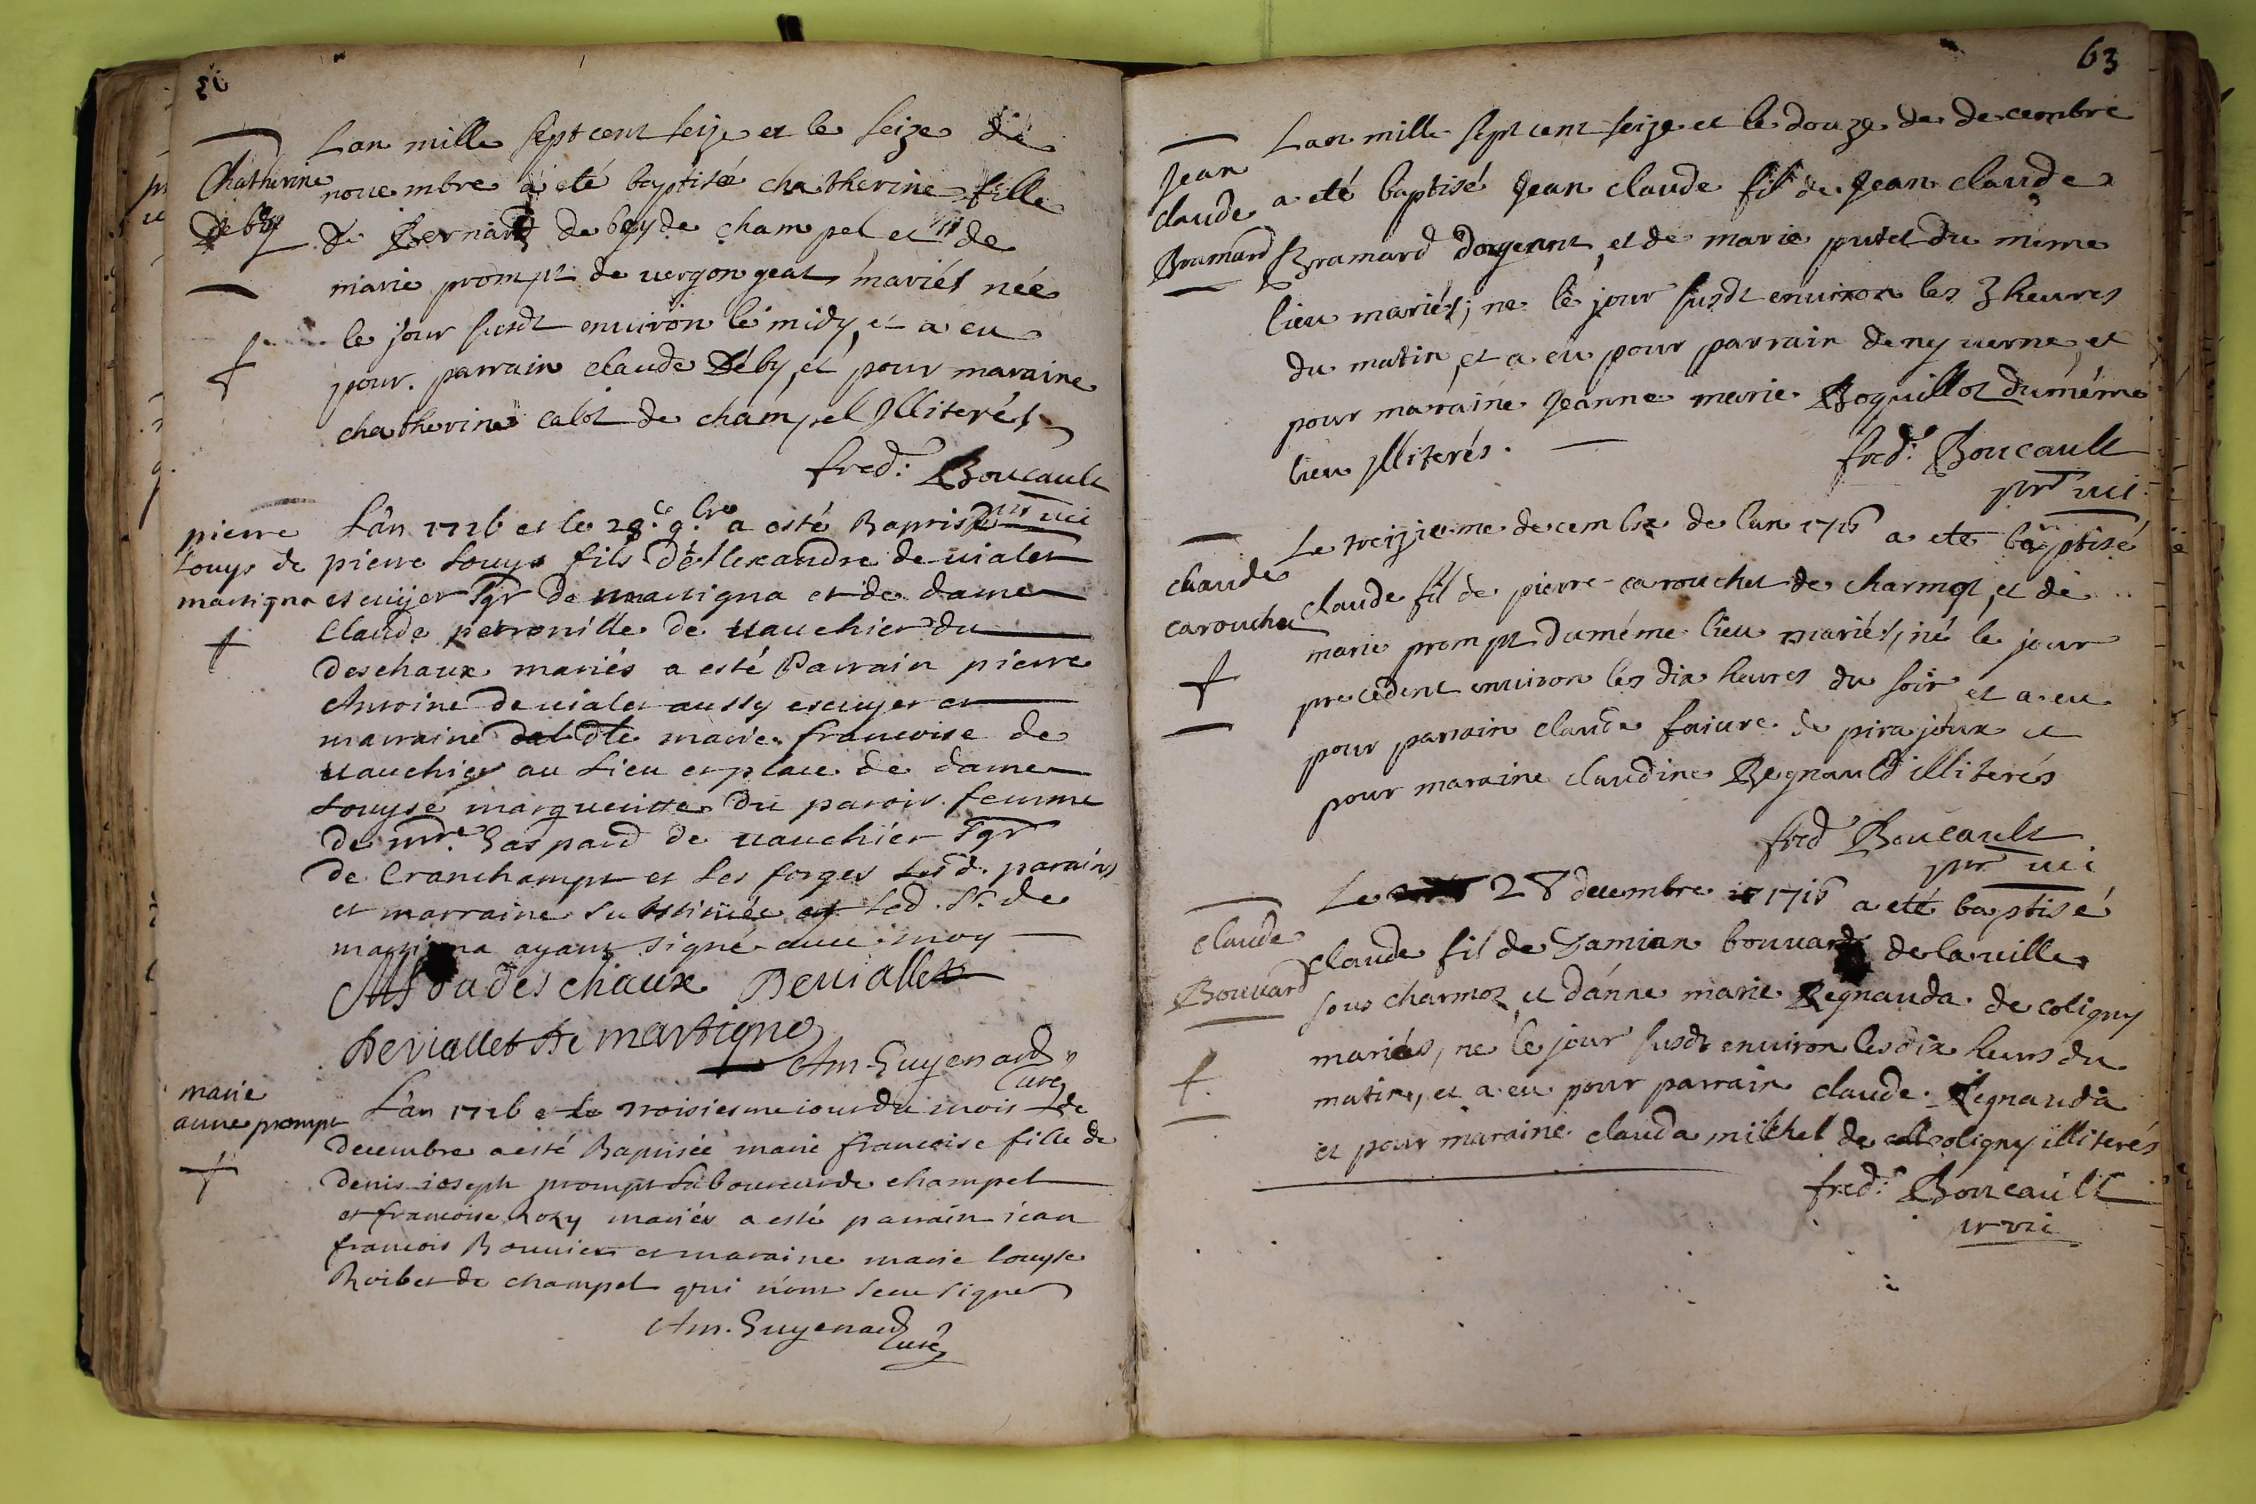 Chatherine
Deby
Lan mille sept cent seize et le seize de
nouembre a eté baptisée chatherine fille
de Bernard deby de champel et de
marie prompt de uergongeat mariés née
le jour susdt enuiron le midy, et a eu
pour parrain claude Déby, et pour maraine
chatherine calot de champel Jlliterés
fred: Boucault
prt uci
pierre
Louys de
martigna
L'an 1716 et le 28e 9bre a esté Baptisé
pierre Louys fils d'Alexandre de uialet
escuijer sgr de martigna et de dame
Claude petronille de uauchier du
deschaux mariés a esté Parrain pierre
Antoine de uialet aussy escuyer et
marraine dlle marie francoise de
uauchier au Lieu et place de dame
Louyse margueritte du paroir femme
de mre Gaspard de uauchier sgr
de Cranchampt et Les forges Lesd. parain
et marraine substituée et Led. sr de
martigna ayant signé auec moy
du deschaux Deuiallet
Deviallet De martigna
Am Guyenard
Curé
marie
anne prompt
L'an 1716 et Le troisiesme iour du mois de
decembre a esté Baptisée marie francoise fille de
denis ioseph prompt Laboureur de champel
et francoise rozy mariés a esté parrain iean
francois Bouuier et maraine marie louyse
Roibet de champel qui n'ont sceu signer
Am. Guyenard
Curé
63
Jean
claude
Bramard
Lan mille sept cent seize et le douze de decembre
a eté baptisé Jean claude fil de Jean claude
Bramard doyennt, et de marie putet du méme
lieu mariés; ne le jour susdt enuiron les 3 heures
du matin, et a eu pour parrain deny uerne, et
pour maraine Jeanne marie Boquillot du méme
lieu Jlliterés.
fred: Boucault
prt uci
claude
carouchet
Le treizieme decembre de lan 1716 a eté baptisé
claude fil de pierre carouchet de charmot, et de
marie prompt du méme lieu mariés, né le jour
precedent enuiron les dix heures du soir et a eu
pour parrain claude faiure de pirajoux et
pour maraine claudine Regnauld illiterés
fred Boucault
prt uci
claude
Bouuard
Le 28 decembre 1716 a eté baptisé
claude fil de Damian bouuard de la uille
sous charmot et d'anne marie Regnauda de coligny
mariés, né le jour susdt enuiron les dix heurs du
matin, et a eu pour parrain claude Regnauda
et pour maraine clauda michel de coligny illiterés
fred: Boucault
pr vci